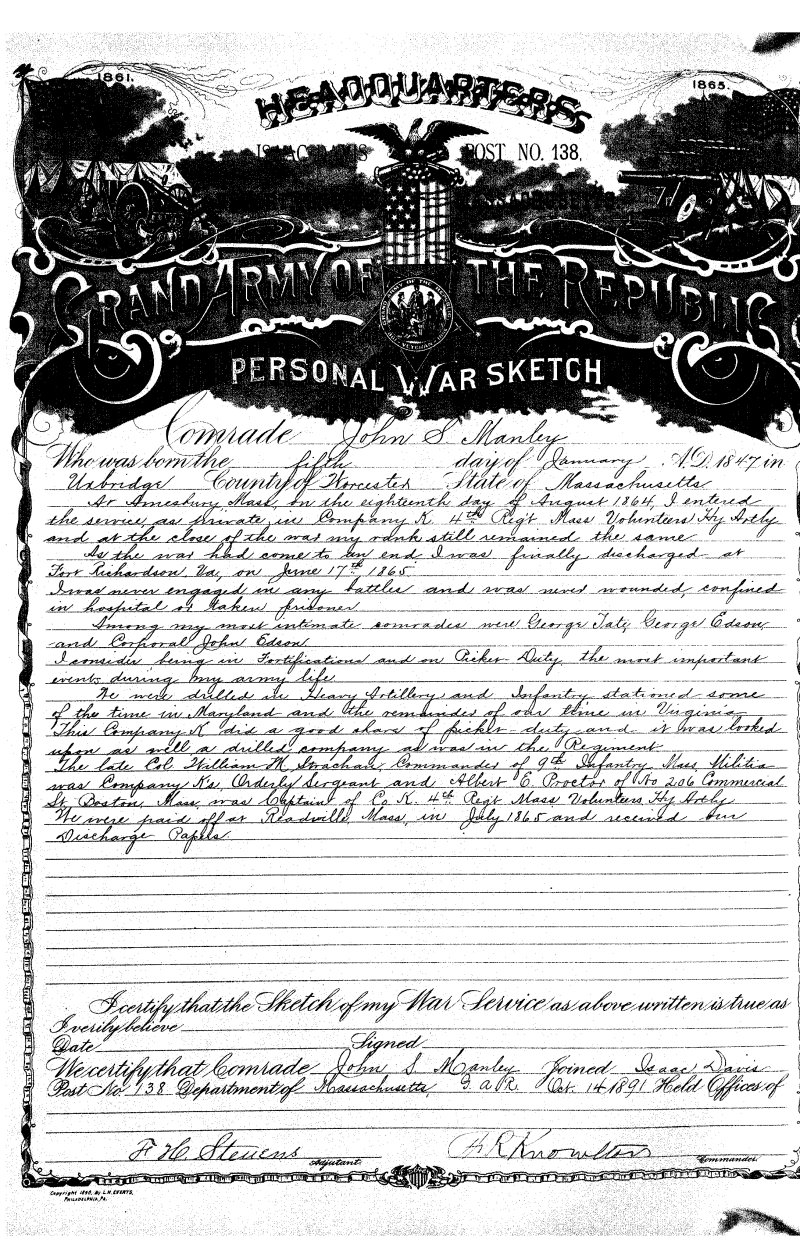 1861.
1865.
HEADQUARTERS
ISAAC DAVIS POST NO. 138,
MASSACHUSETTS
GRAND ARMY OF THE REPUBLIC
PERSONAL WAR SKETCH
Comrade John S Manley
Who was born the fifth day of January A.D. 1847 in
Uxbridge County of Worcester State of Massachusetts
At Amesbury Mass, on the eighteenth day of August 1864, I entered
the service, as private, in Company K. 4th Reg't Mass Volunteers Hy Artly
and at the close of the war my rank still remained the same
As the war had come to an end I was finally discharged at
Fort Richardson, Va, on June 17th 1865
I was never engaged in any battles and was never wounded, confined
in hospital or taken prisoner
Among my most intimate comrades were George Tate, George Edson,
and Corporal John Edson
I consider being in Fortifications and on Picket Duty, the most important
events during my army life
We were drilled in Heavy Artillery and Infantry stationed some
of the time in Maryland and the remainder of our time in Virginia
This Company K did a good share of picket duty and it was looked
upon as well a drilled company as was in the Regiment
The late Col. William M. Strachan, Commander of 9th Infantry, Mass, Militia
was Company K's, Orderly Sergeant and Albert E. Proctor of No 206 Commercial
St, Boston, Mass, was Captain of Co K. 4th Reg't Mass Volunteers, Hy Artly
We were paid off at Readville, Mass, in July 1865 and received our
Discharge Papers
I certify that the Sketch of my War Service as above written is true as
I verily believe
Date Signed
We certify that Comrade John S Manley Joined Isaac Davis
Post No 138 Department of Massachusetts, G.A.R. Oct. 14 1891 Held Offices of
F. H. Stevens Adjutant. A R Knowlton Commander.
Copyright 1890, By L.H. EVERTS,
PHILADELPHIA, PA.